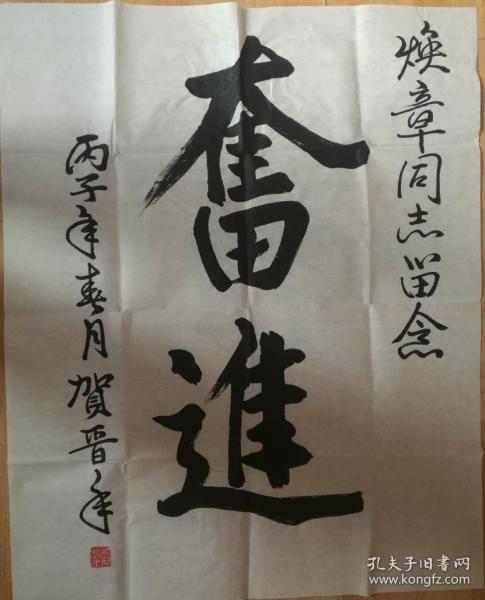 焕章同志留念
奮進
丙子年春月賀晋年
孔夫子旧书网
www.kongfz.com